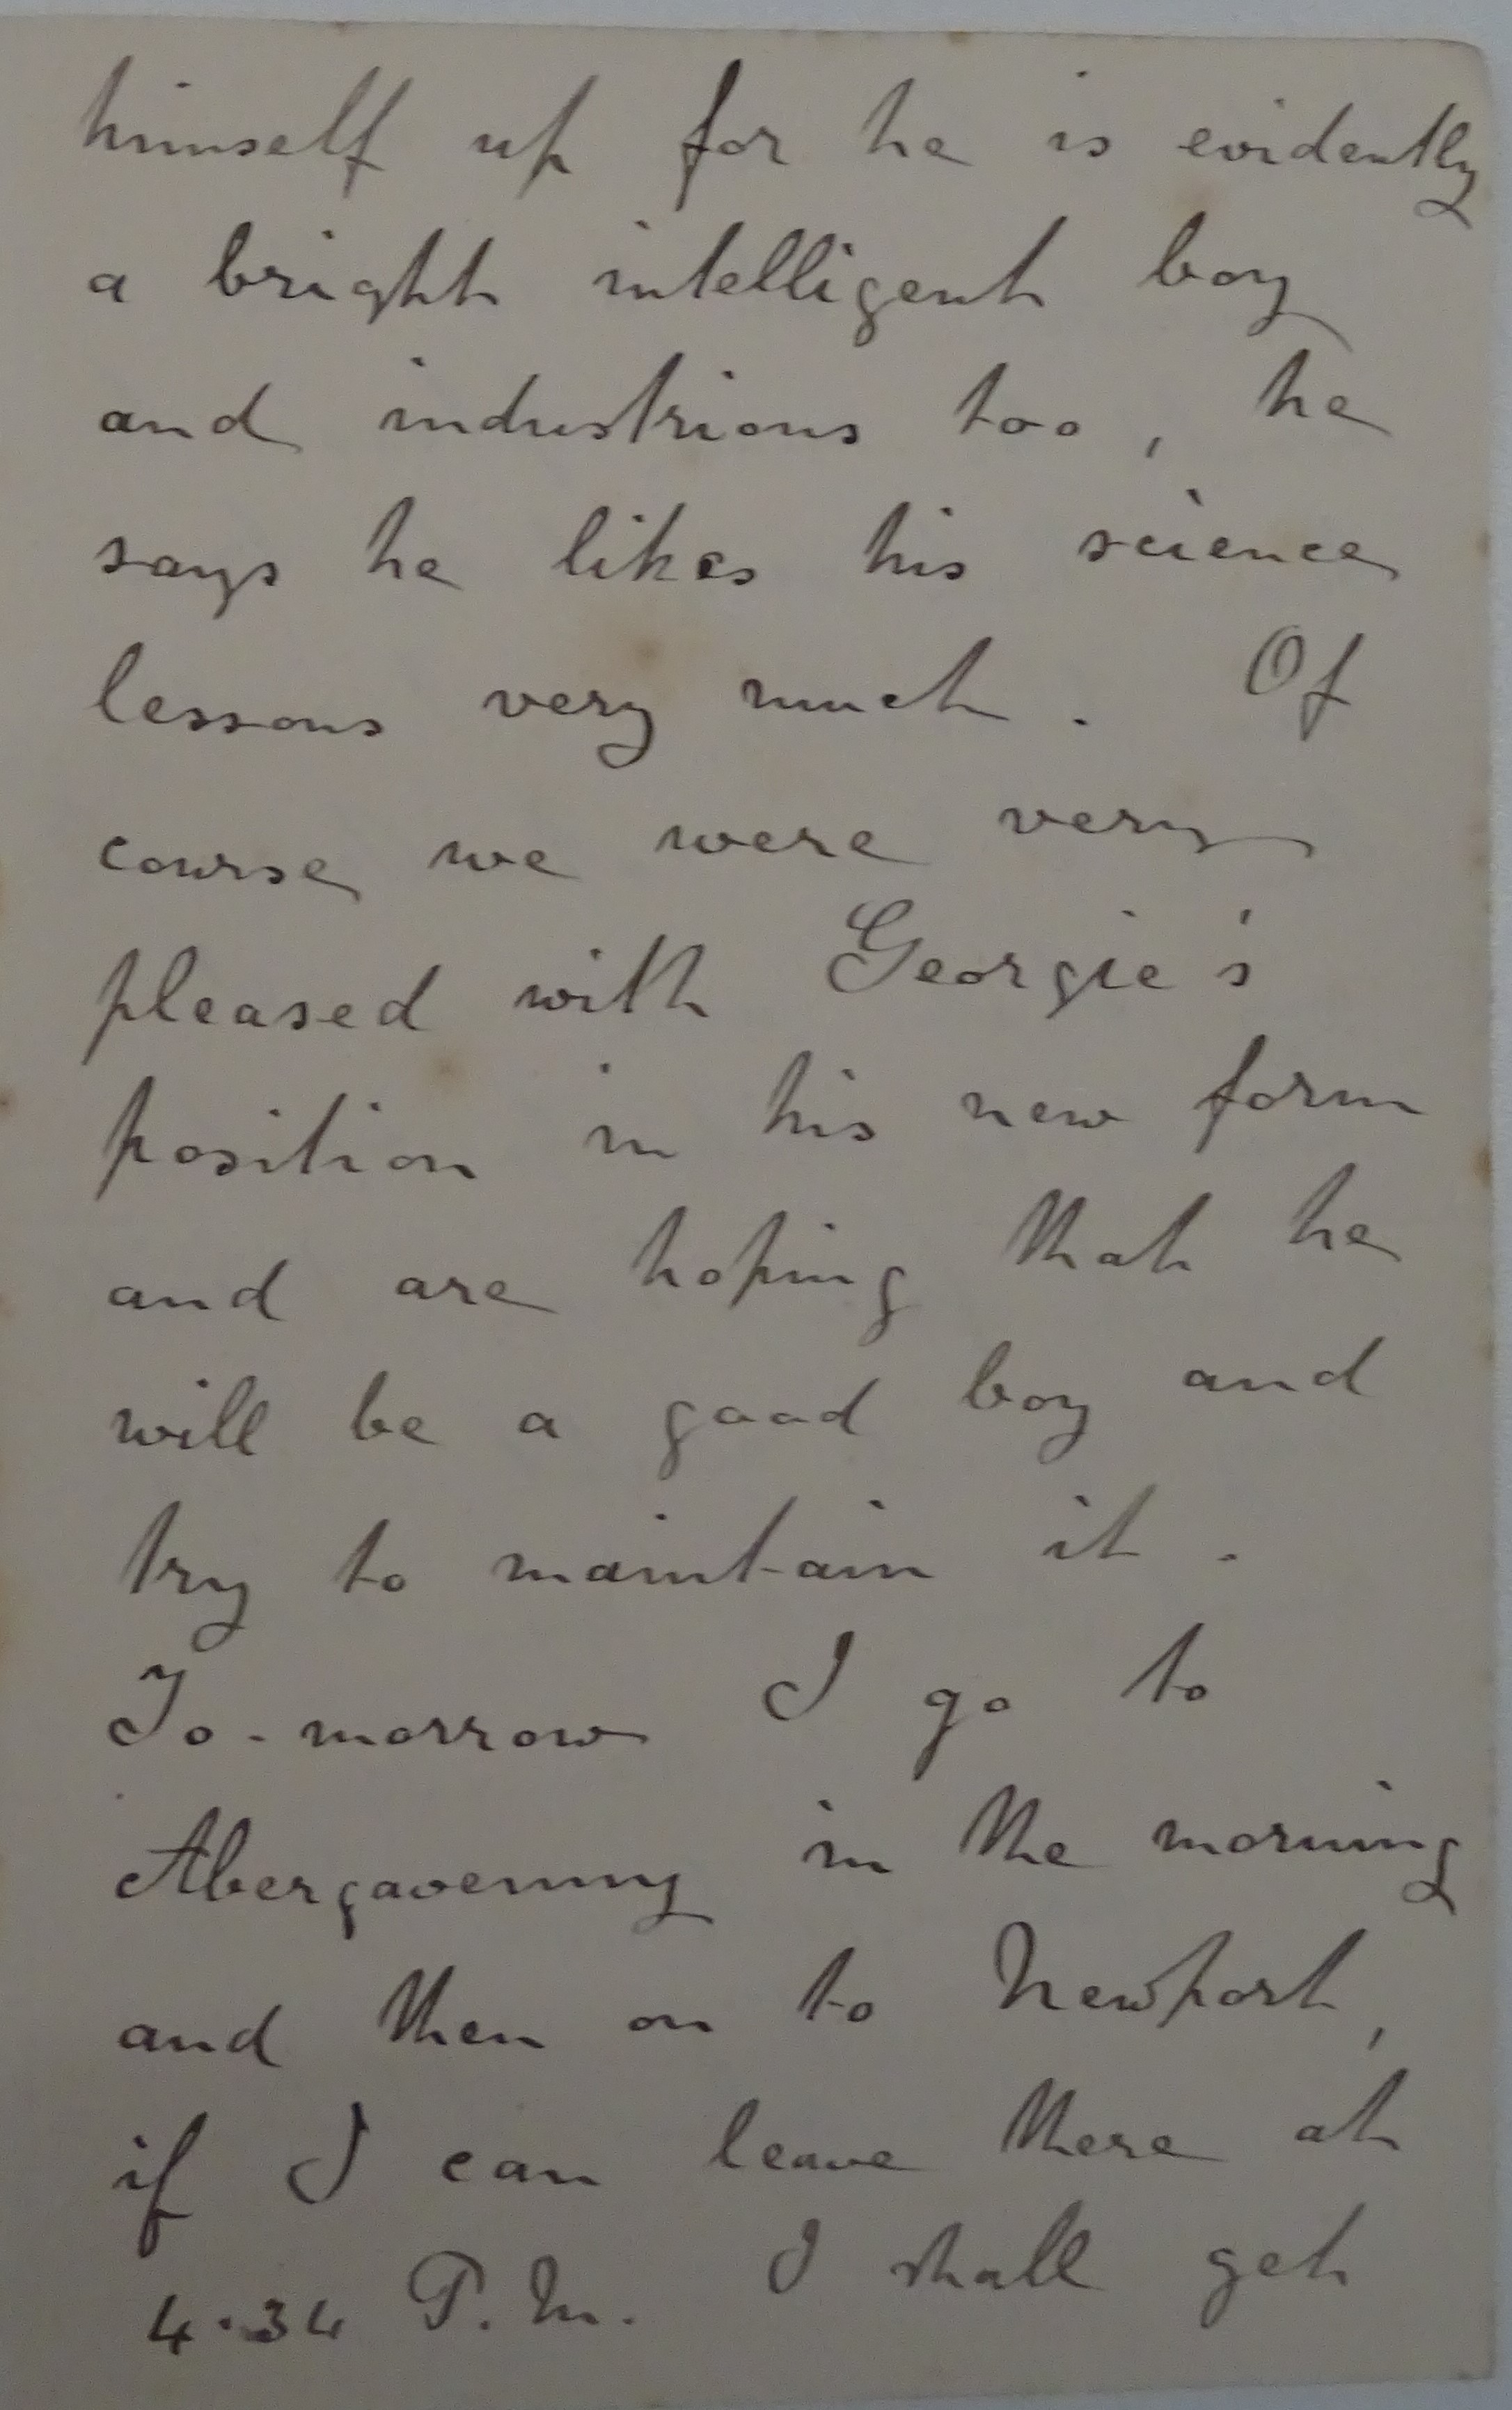 himself up for he is evidently
a bright intelligent boy
and industrious too, he
says he likes his science
lessons very much. Of
course we were very
pleased with Georgie's
position in his new form
and are hoping that he
will be a good boy and
try to maintain it.
To-morrow I go to
Abergavenny in the morning
and then on to Newport,
if I can leave there at
4.34 P.M. I shall get